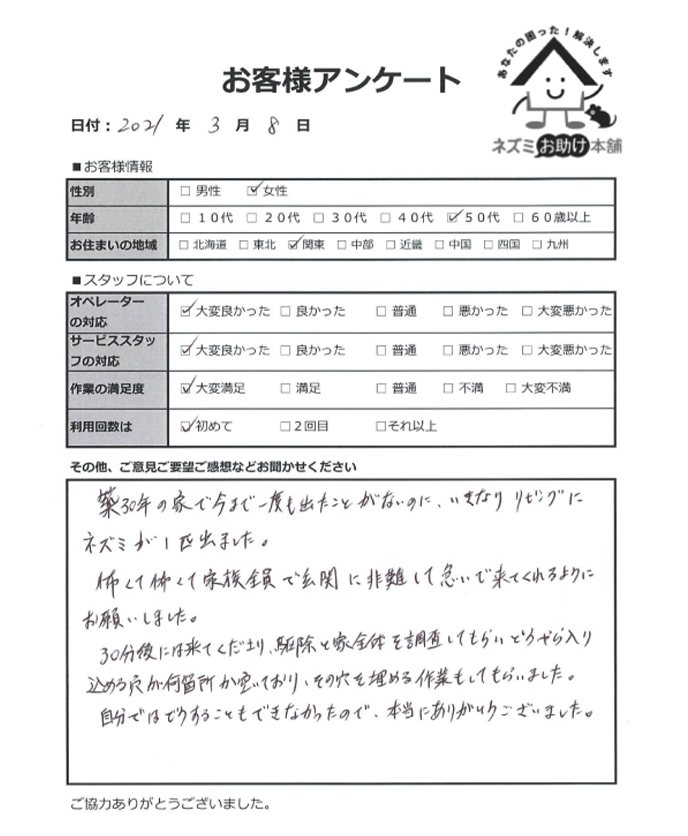 あなたの困った！解決します
お客様アンケート
ネズミお助け本舗
日付：2021 年 3 月 8 日
■お客様情報
性別 □ 男性 ☑ 女性
年齢 □ 10代 □ 20代 □ 30代 □ 40代 ☑ 50代 □ 60歳以上
お住まいの地域 □ 北海道 □ 東北 ☑ 関東 □ 中部 □ 近畿 □ 中国 □ 四国 □ 九州
■スタッフについて
オペレーター
の対応 ☑ 大変良かった □ 良かった □ 普通 □ 悪かった □ 大変悪かった
サービススタッ
フの対応 ☑ 大変良かった □ 良かった □ 普通 □ 悪かった □ 大変悪かった
作業の満足度 ☑ 大変満足 □ 満足 □ 普通 □ 不満 □ 大変不満
利用回数は ☑ 初めて □ 2回目 □それ以上
その他、ご意見ご要望ご感想などお聞かせください
築30年の家で今まで一度も出たことがないのに、いきなりリビングに
ネズミが1匹出ました。
怖くて怖くて家族全員で玄関に非難して急いで来てくれるように
お願いしました。
30分後には来てくださり、駆除と家全体を調査してもらいどうやら入り
込める穴が何箇所か空いており、その穴を埋める作業もしてもらいました。
自分ではどうすることもできなかったので、本当にありがとうございました。
ご協力ありがとうございました。